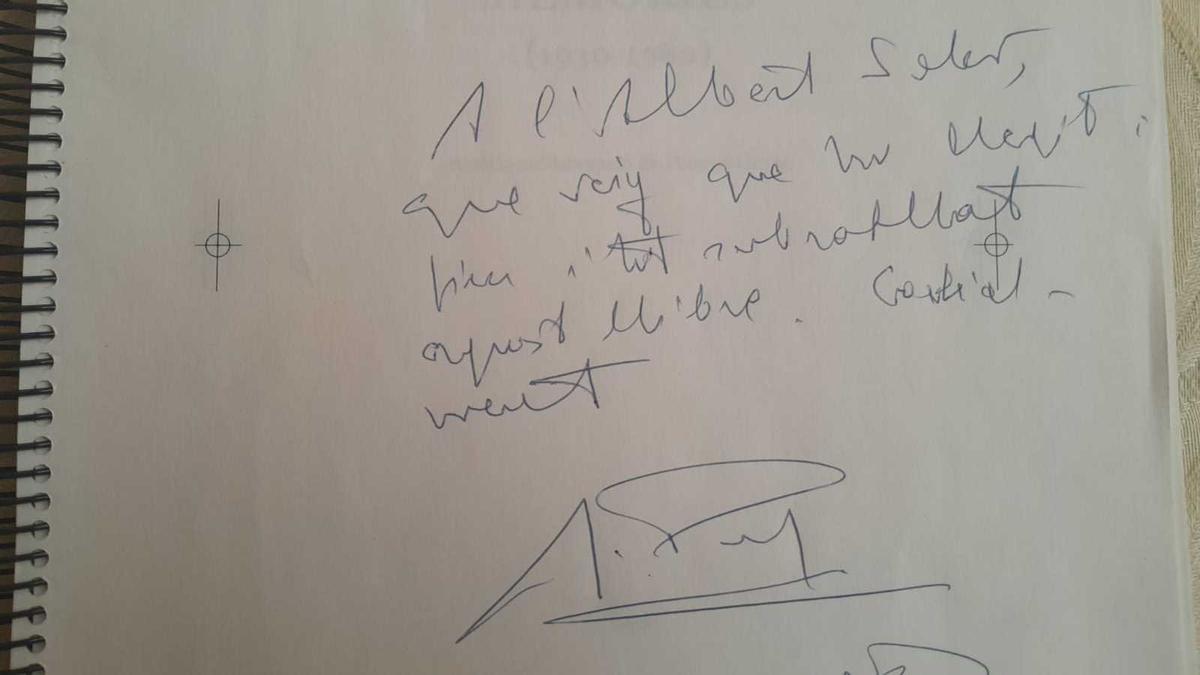 A l'Albert Soler,
que veig que ha llegit i
fins i tot subratllat
aquest llibre. Cordial-
ment